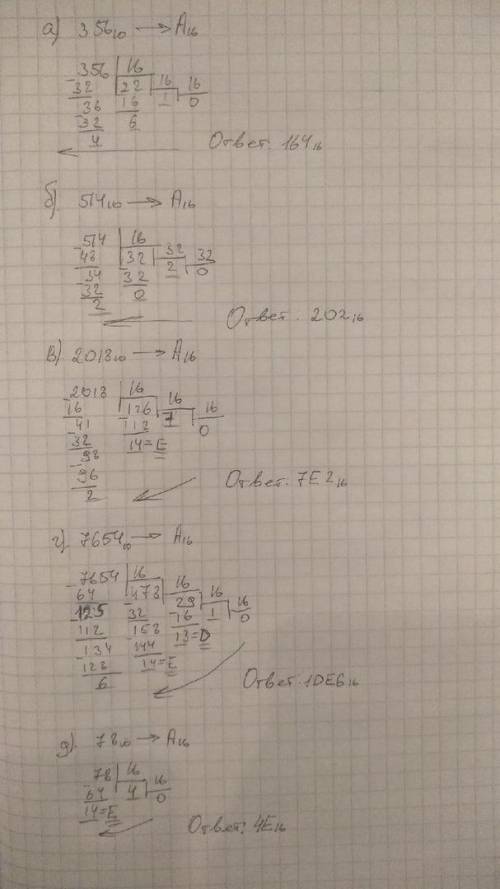 а) 356₁₀ → A₁₆
-356 | 16
32 | 22 | 16 | 16
-36 | 16 | 1 | 0
32 | 6
4
Ответ: 164₁₆
б) 514₁₀ → A₁₆
-514 | 16
48 | 32 | 32 | 32
-34 | -32 | 2 | 0
32 | 0
2
Ответ: 202₁₆
в) 2018₁₀ → A₁₆
-2018 | 16
16 | 126 | 16 | 16
-41 | -112 | 7 | 0
32 | 14=E
-98
96
2
Ответ: 7E2₁₆
г) 7654₁₀ → A₁₆
-7654 | 16
64 | 478 | 16
-125 | 32 | 29 | 16 | 16
112 | -158 | -16 | 1 | 0
-134 | 144 | 13=D
128 | 14=E
6
Ответ: 1DE6₁₆
д) 78₁₀ → A₁₆
-78 | 16 | 16
64 | 4 | 0
14=E
Ответ: 4E₁₆